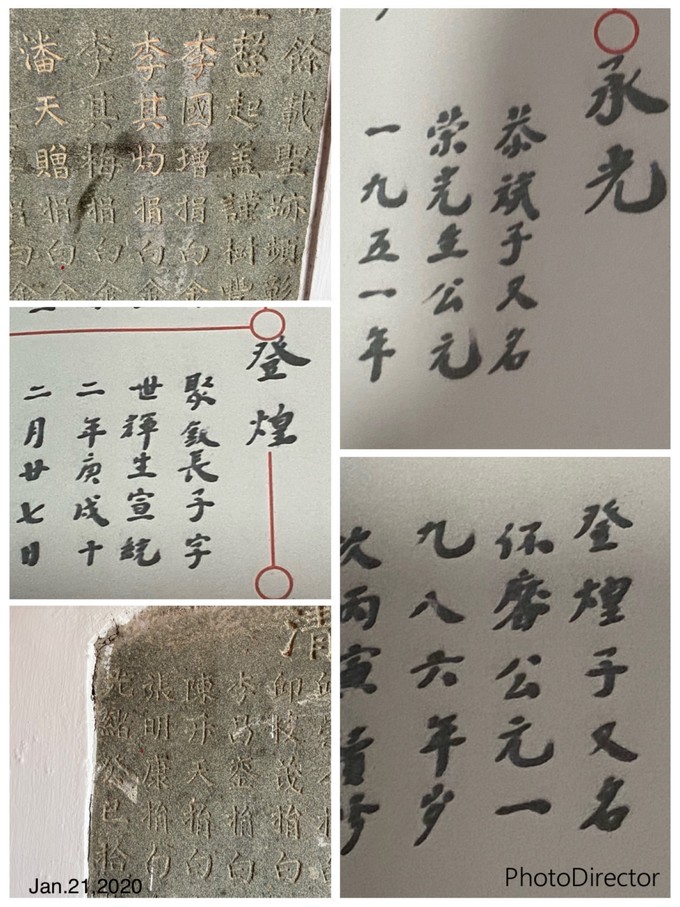 餘載聖跡頻彰
起蓋謹樹豐
李國增捐白金
李其灼捐白金
李其梅捐白金
潘天贈捐白金
承光
恭斌子又名
荣光生公元
一九五一年
登煌
聚敘長子字
世輝生宣統
二年庚戌十
二月廿七日
登煌子又名
公元一
九八六年岁
次丙寅
清
捐白
李捐白
陳天捐白
張明康捐白
光緒癸巳拾
Jan.21,2020
PhotoDirector